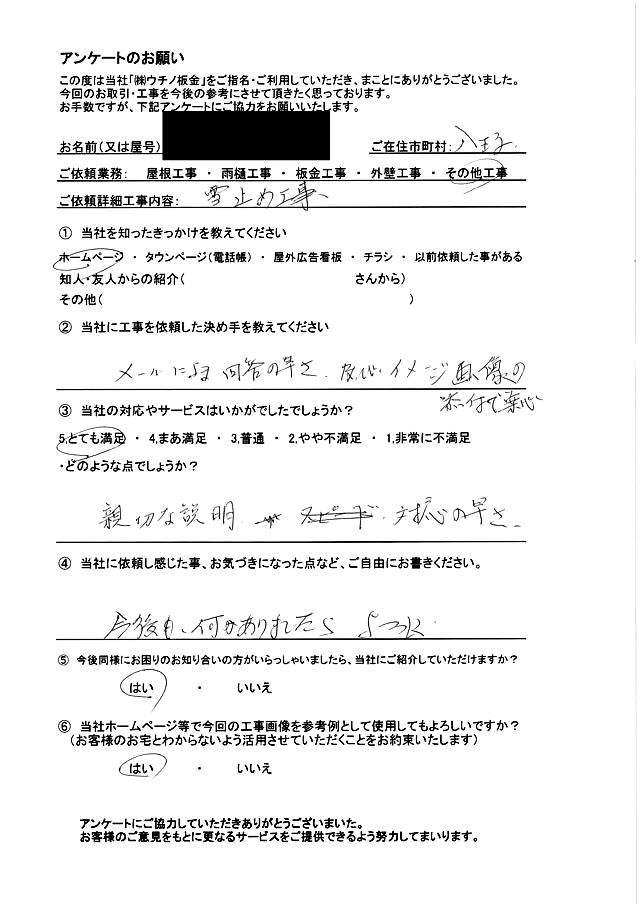 アンケートのお願い
この度は当社「㈱ウチノ板金」をご指名・ご利用していただき、まことにありがとうございました。
今回のお取引・工事を今後の参考にさせて頂きたく思っております。
お手数ですが、下記アンケートにご協力をお願いいたします。
お名前(又は屋号) ご在住市町村: 八王子
ご依頼業務: 屋根工事 ・ 雨樋工事 ・ 板金工事 ・ 外壁工事 ・ その他工事
ご依頼詳細工事内容: 雪止め工事
① 当社を知ったきっかけを教えてください
ホームページ ・ タウンページ(電話帳) ・ 屋外広告看板 ・ チラシ ・ 以前依頼した事がある
知人・友人からの紹介( さんから)
その他( )
② 当社に工事を依頼した決め手を教えてください
メールによる回答の早さ、及び、イメージ画像の
添付で安心
③ 当社の対応やサービスはいかがでしたでしょうか?
5,とても満足 ・ 4,まあ満足 ・ 3,普通 ・ 2,やや不満足 ・ 1,非常に不満足
・どのような点でしょうか?
親切な説明 スピード 対応の早さ、
④ 当社に依頼し感じた事、お気づきになった点など、ご自由にお書きください。
今後も、何かありましたら
⑤ 今後同様にお困りのお知り合いの方がいらっしゃいましたら、当社にご紹介していただけますか?
はい ・ いいえ
⑥ 当社ホームページ等で今回の工事画像を参考例として使用してもよろしいですか?
(お客様のお宅とわからないよう活用させていただくことをお約束いたします)
はい ・ いいえ
アンケートにご協力していただきありがとうございまいた。
お客様のご意見をもとに更なるサービスをご提供できるよう努力してまいります。